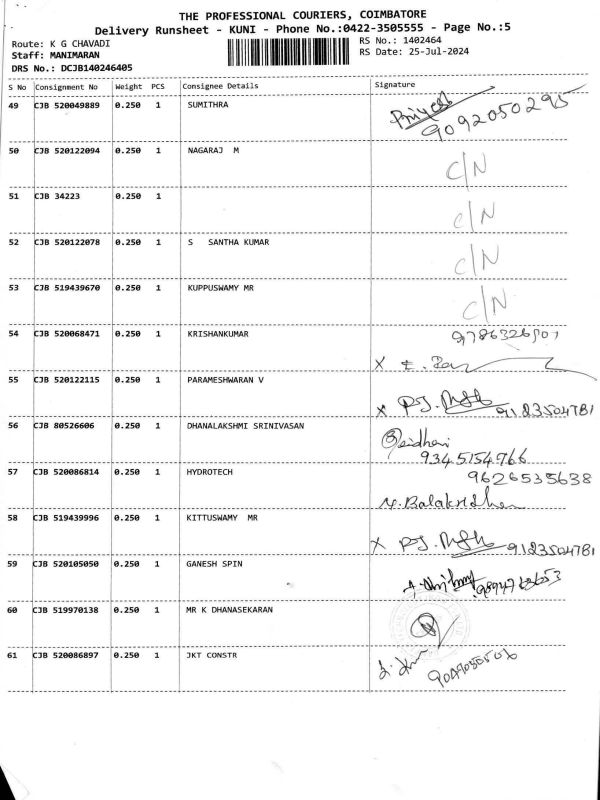 THE PROFESSIONAL COURIERS, COIMBATORE
Delivery Runsheet - KUNI - Phone No.:0422-3505555 - Page No.:5
Route: K G CHAVADI
RS No.: 1402464
Staff: MANIMARAN
RS Date: 25-Jul-2024
DRS No.: DCJB140246405
S No Consignment No Weight PCS Consignee Details Signature
49 CJB 520049889 0.250 1 SUMITHRA
9092050295
50 CJB 520122094 0.250 1 NAGARAJ M C/N
51 CJB 34223 0.250 1 C/N
52 CJB 520122078 0.250 1 S SANTHA KUMAR C/N
53 CJB 519439670 0.250 1 KUPPUSWAMY MR C/N
54 CJB 520068471 0.250 1 KRISHANKUMAR
X
55 CJB 520122115 0.250 1 PARAMESHWARAN V
X 9123504781
56 CJB 80526606 0.250 1 DHANALAKSHMI SRINIVASAN
9345154766
57 CJB 520086814 0.250 1 HYDROTECH 9626535638
58 CJB 519439996 0.250 1 KITTUSWAMY MR
X 9123504781
59 CJB 520105050 0.250 1 GANESH SPIN
60 CJB 519970138 0.250 1 MR K DHANASEKARAN
61 CJB 520086897 0.250 1 JKT CONSTR